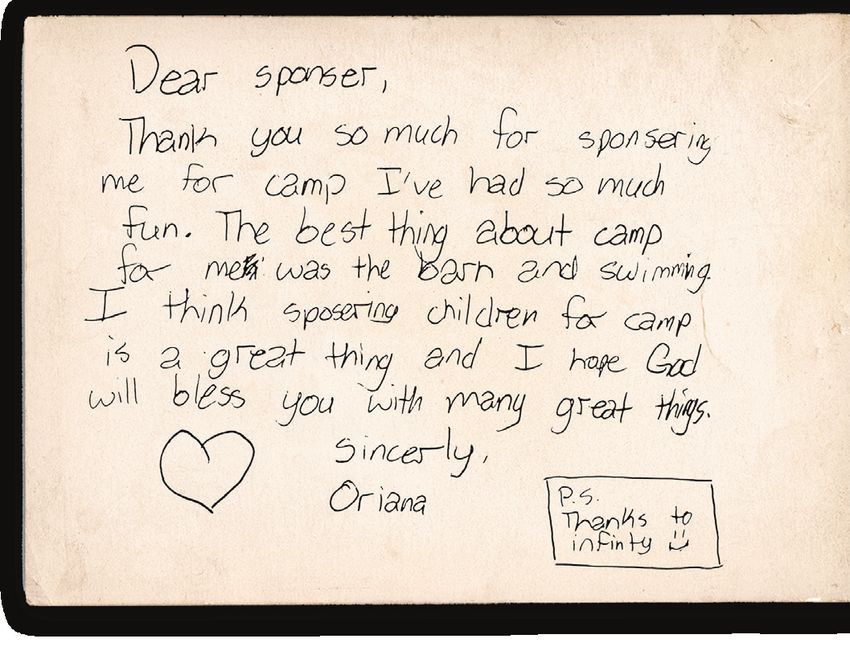 Dear sponser,
Thank you so much for sponsering
me for camp I've had so much
fun. The best thing about camp
for me was the barn and swimming.
I think sposering children for camp
is a great thing and I hope God
will bless you with many great things.
Sincerly,
Oriana
P.S.
Thanks to
infinty